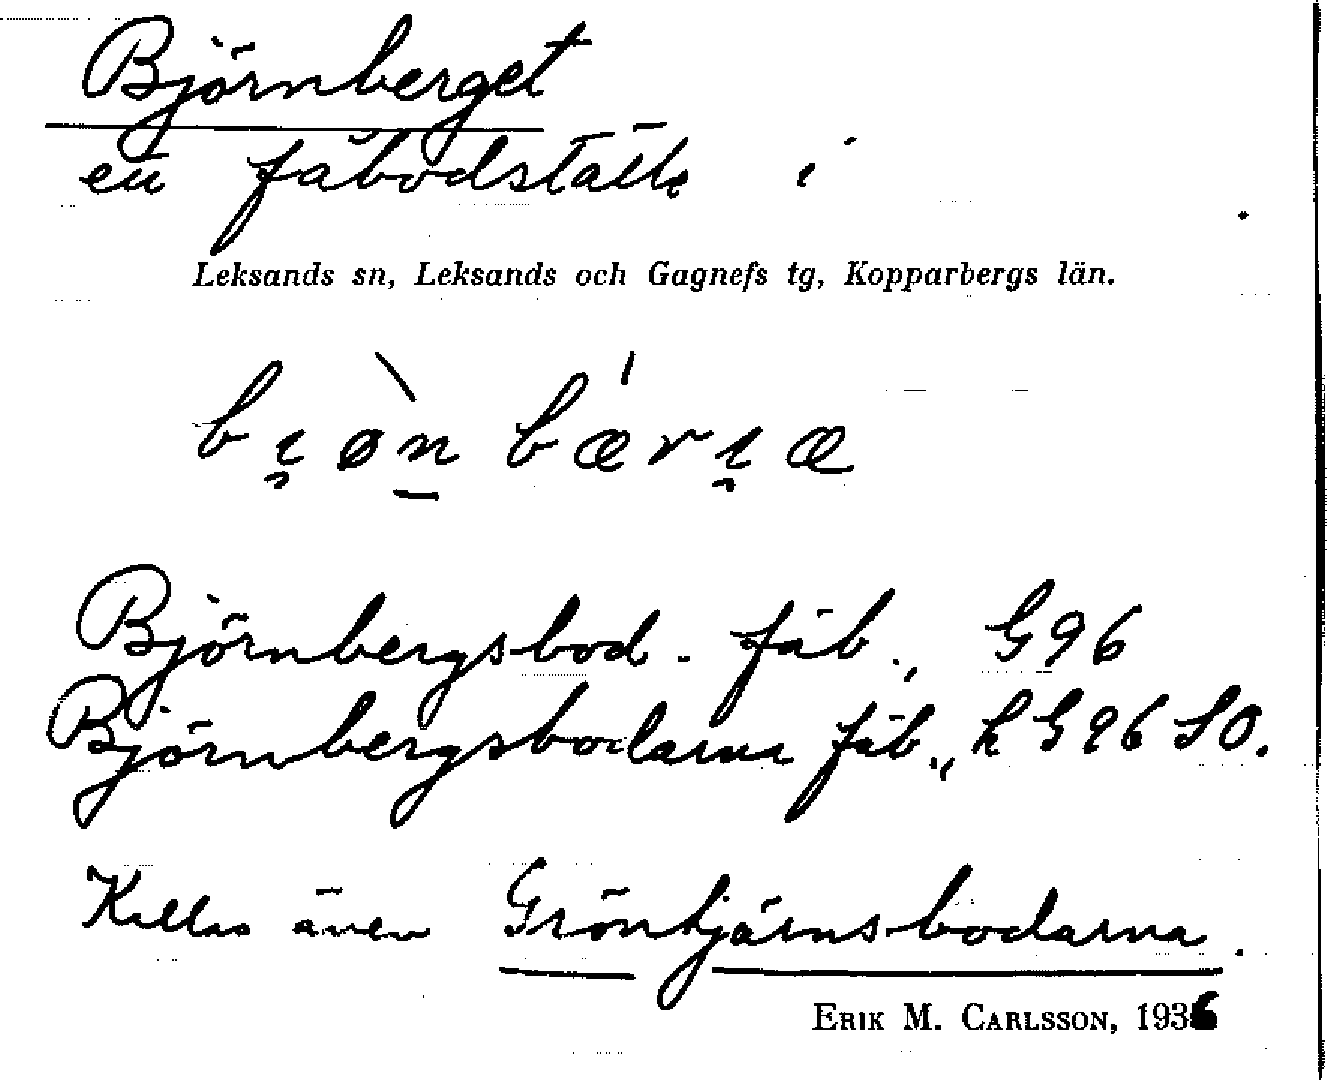 Björnberget
en fäbodställe i
Leksands sn, Leksands och Gagnefs tg, Kopparbergs län.
bi̯øn̠ bæri̯æ
Björnbergsbod. fäb., G96
Björnbergsbodarna fäb., h G96 SO.
Kallas även Gröntjärnsbodarna.
ERIK M. CARLSSON, 1936